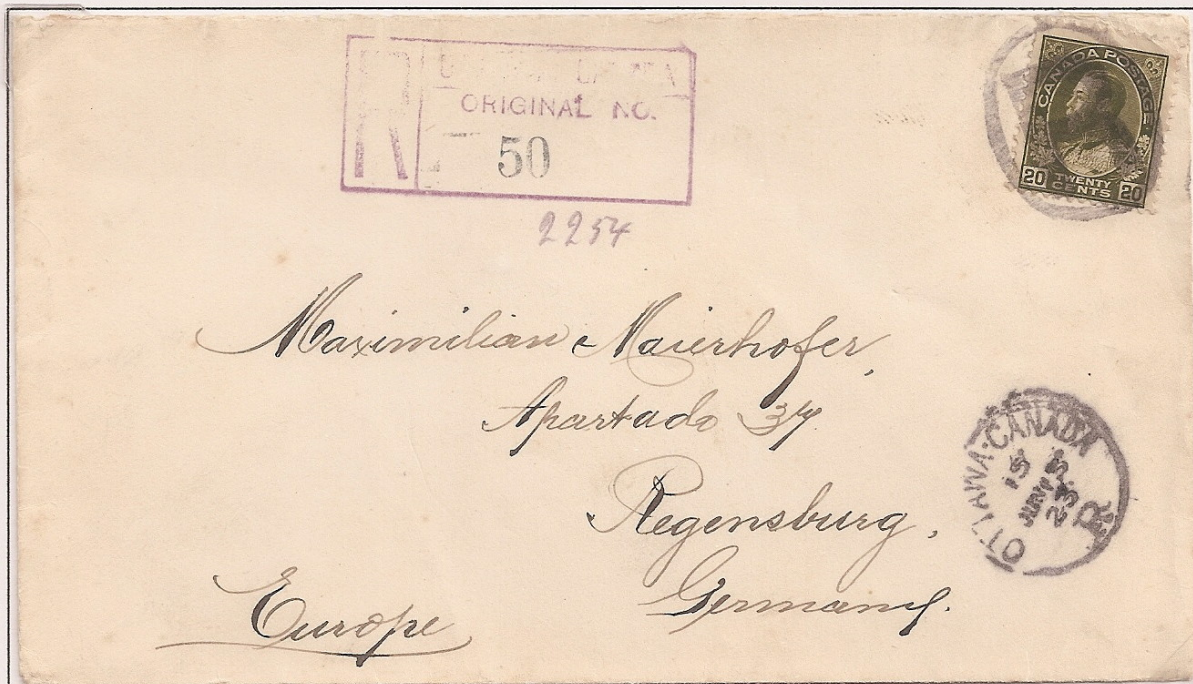 R
ORIGINAL NO.
50
2254
CANADA POSTAGE
20 TWENTY CENTS 20
Maximilian Maierhofer,
Apartado 37.
Regensburg,
Germany.
Europe
OTTAWA·CANADA
15
23
R